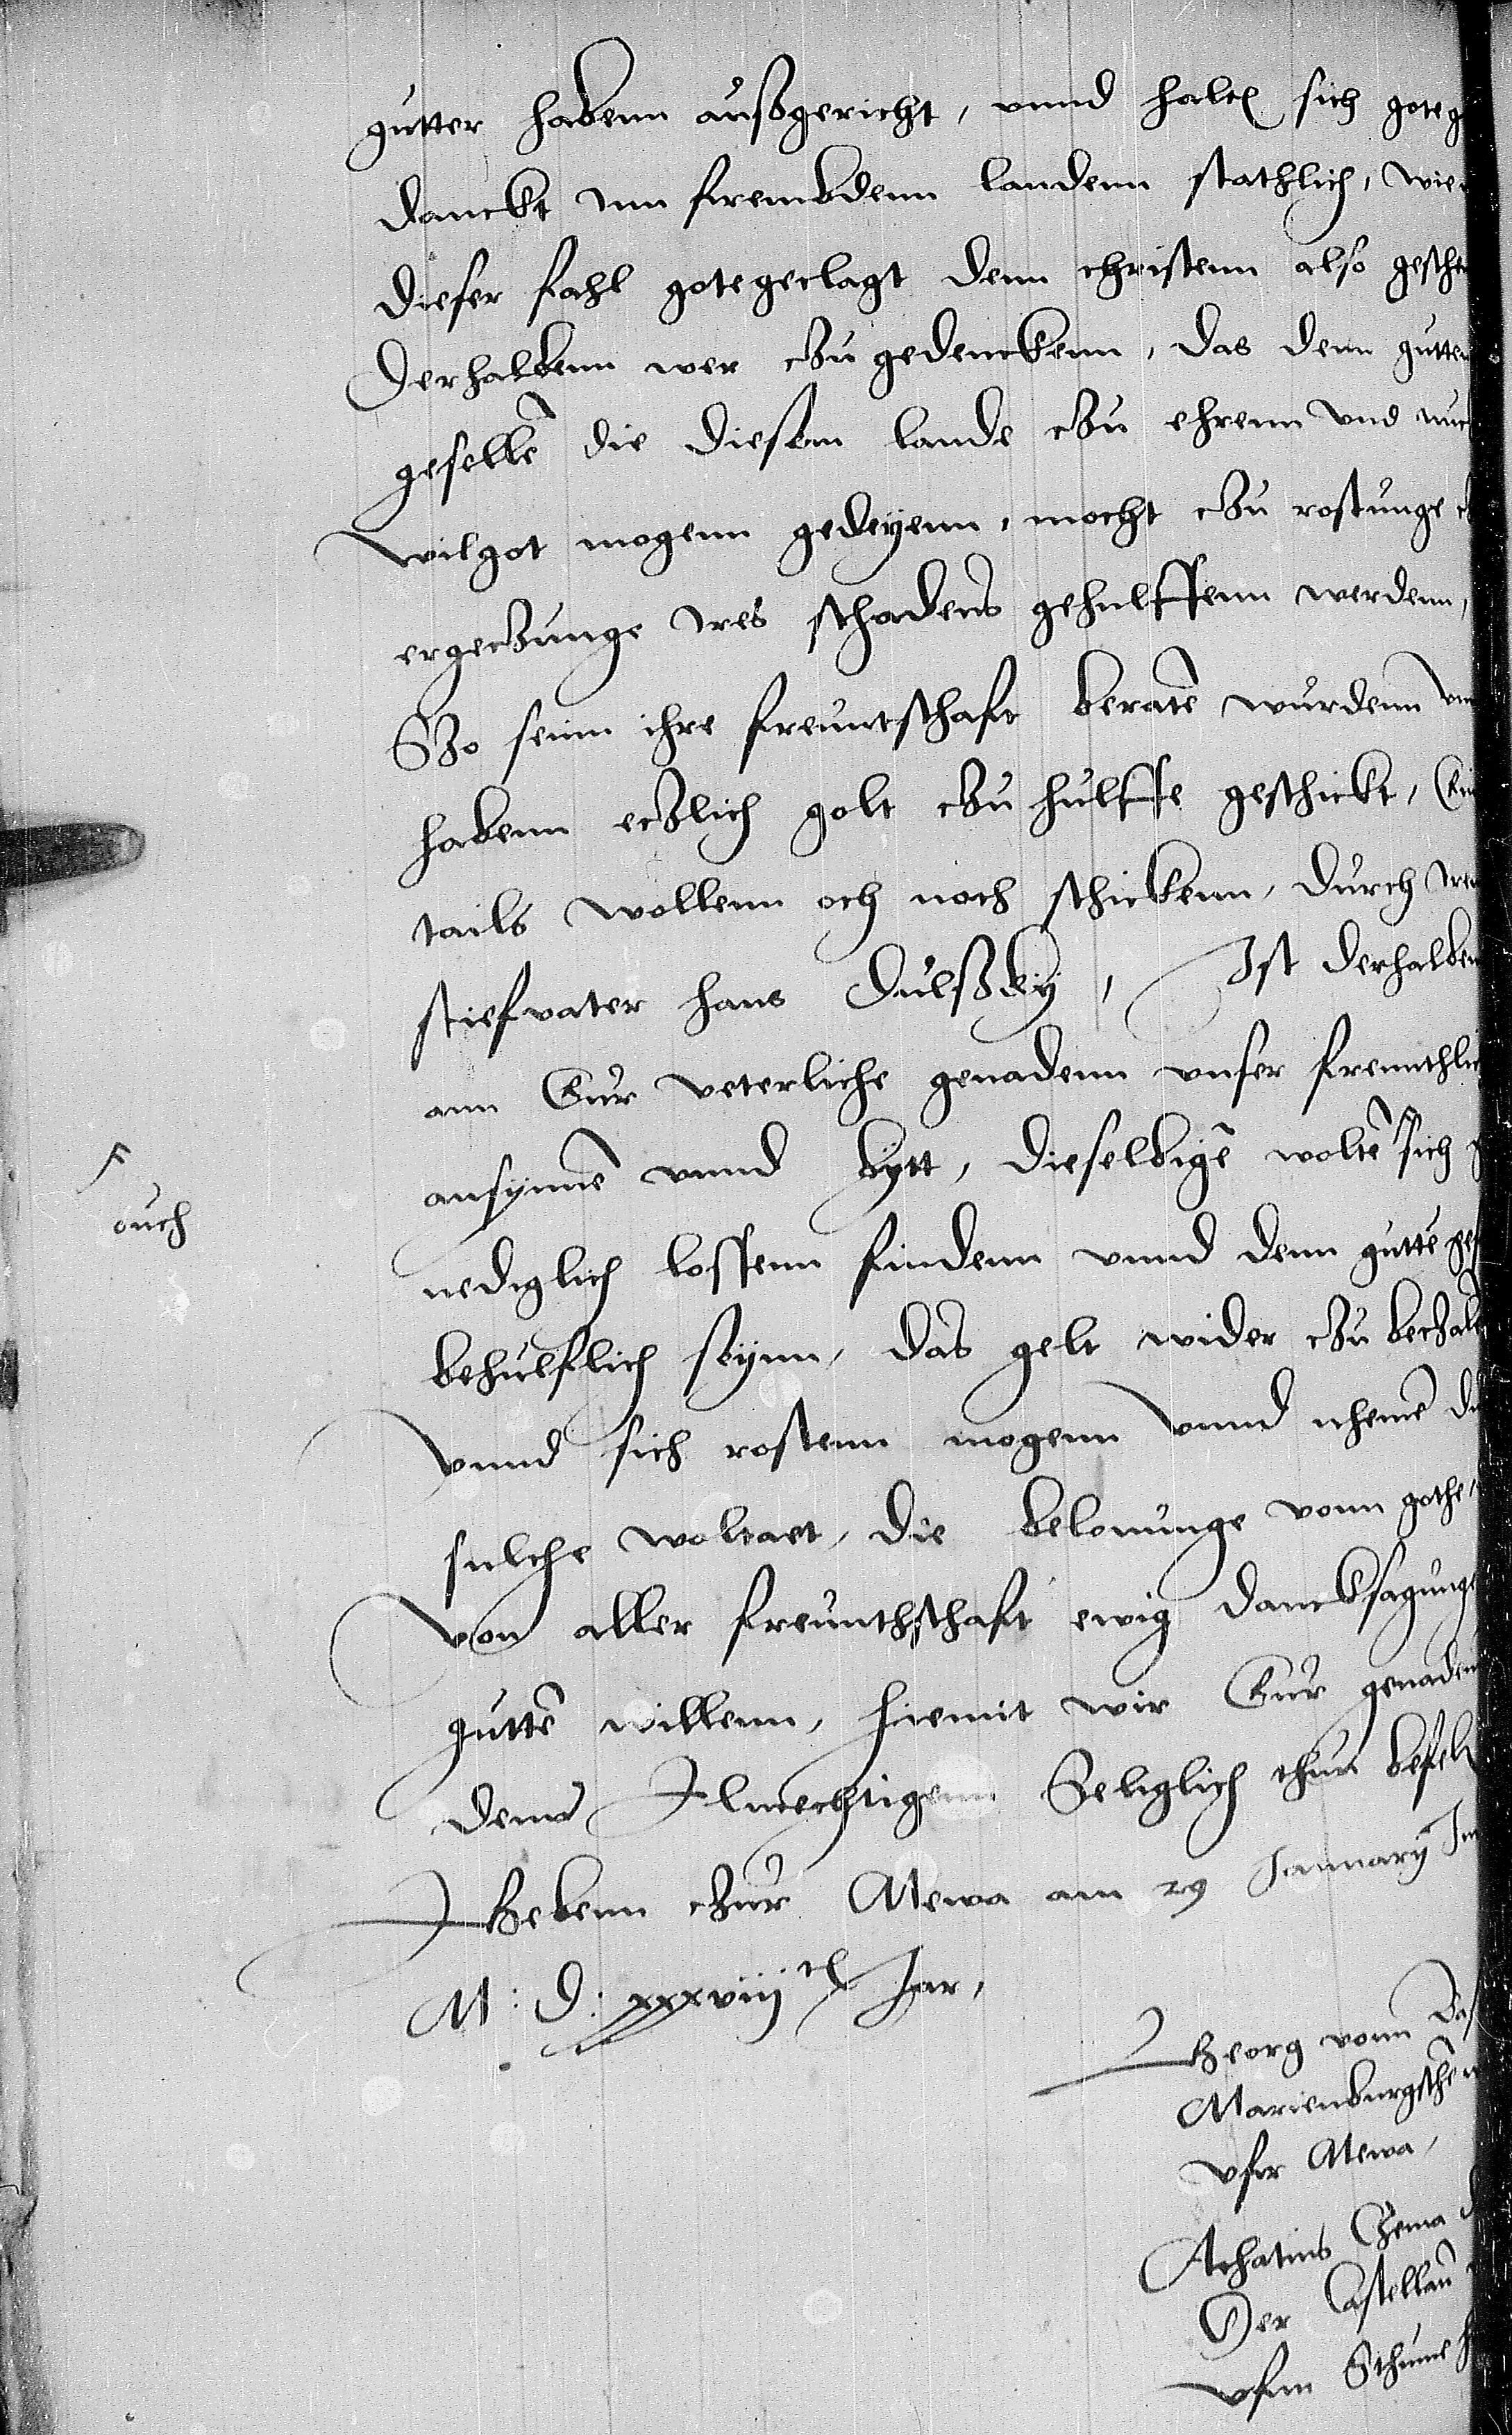 gutter habenn außgericht, vnnd halt sich goteg
danckt inn frembdenn landenn stathlich, wie
dieser fahl gotegeclagt denn christenn also gesche
Derhalbenn wer czu gedenckenn, das denn gutten
gesellē die diesem lande czu ehrenn vnd nuc
wilgot mogenn gedeyenn, mocht czu rostunge
ergeczunge ires schadens gehulffenn werdenn,
Szo seinn ihre freuntschaft beratē wurdenn vn
habenn eczlich golt czu hulffe geschickt,
tails wollenn och noch schickenn, durch iren
stiefvater hans Dulßky, Ist derhalben
ann Eur veterliche genadenn vnser freunthlic
ansynnē vnnd bytt, dieselbigē woltē sich
ouch
nediglich lossenn findenn vnnd denn guttē ges
behulflich seynn, das gelt wider czu beczal
vnnd sich rostenn mogenn vnnd nhemē
sulche woltaet, die belonunge vonn gothe,
von aller freunthschaft ewig dancksagunge
guttē willenn, hiemit wir Eur genaden
denn Almechtigenn Seliglich thun befel
Gebenn czur Mewa am 29 January Im
M: D: xxxviij Jar,
Georg vonn Ba
Marienburgschē
vfir Mewa,
Achatius Czema
Der Castellan
vfm Sthume